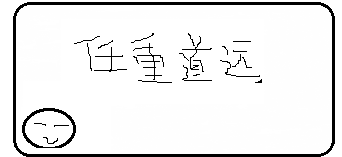 任重道远